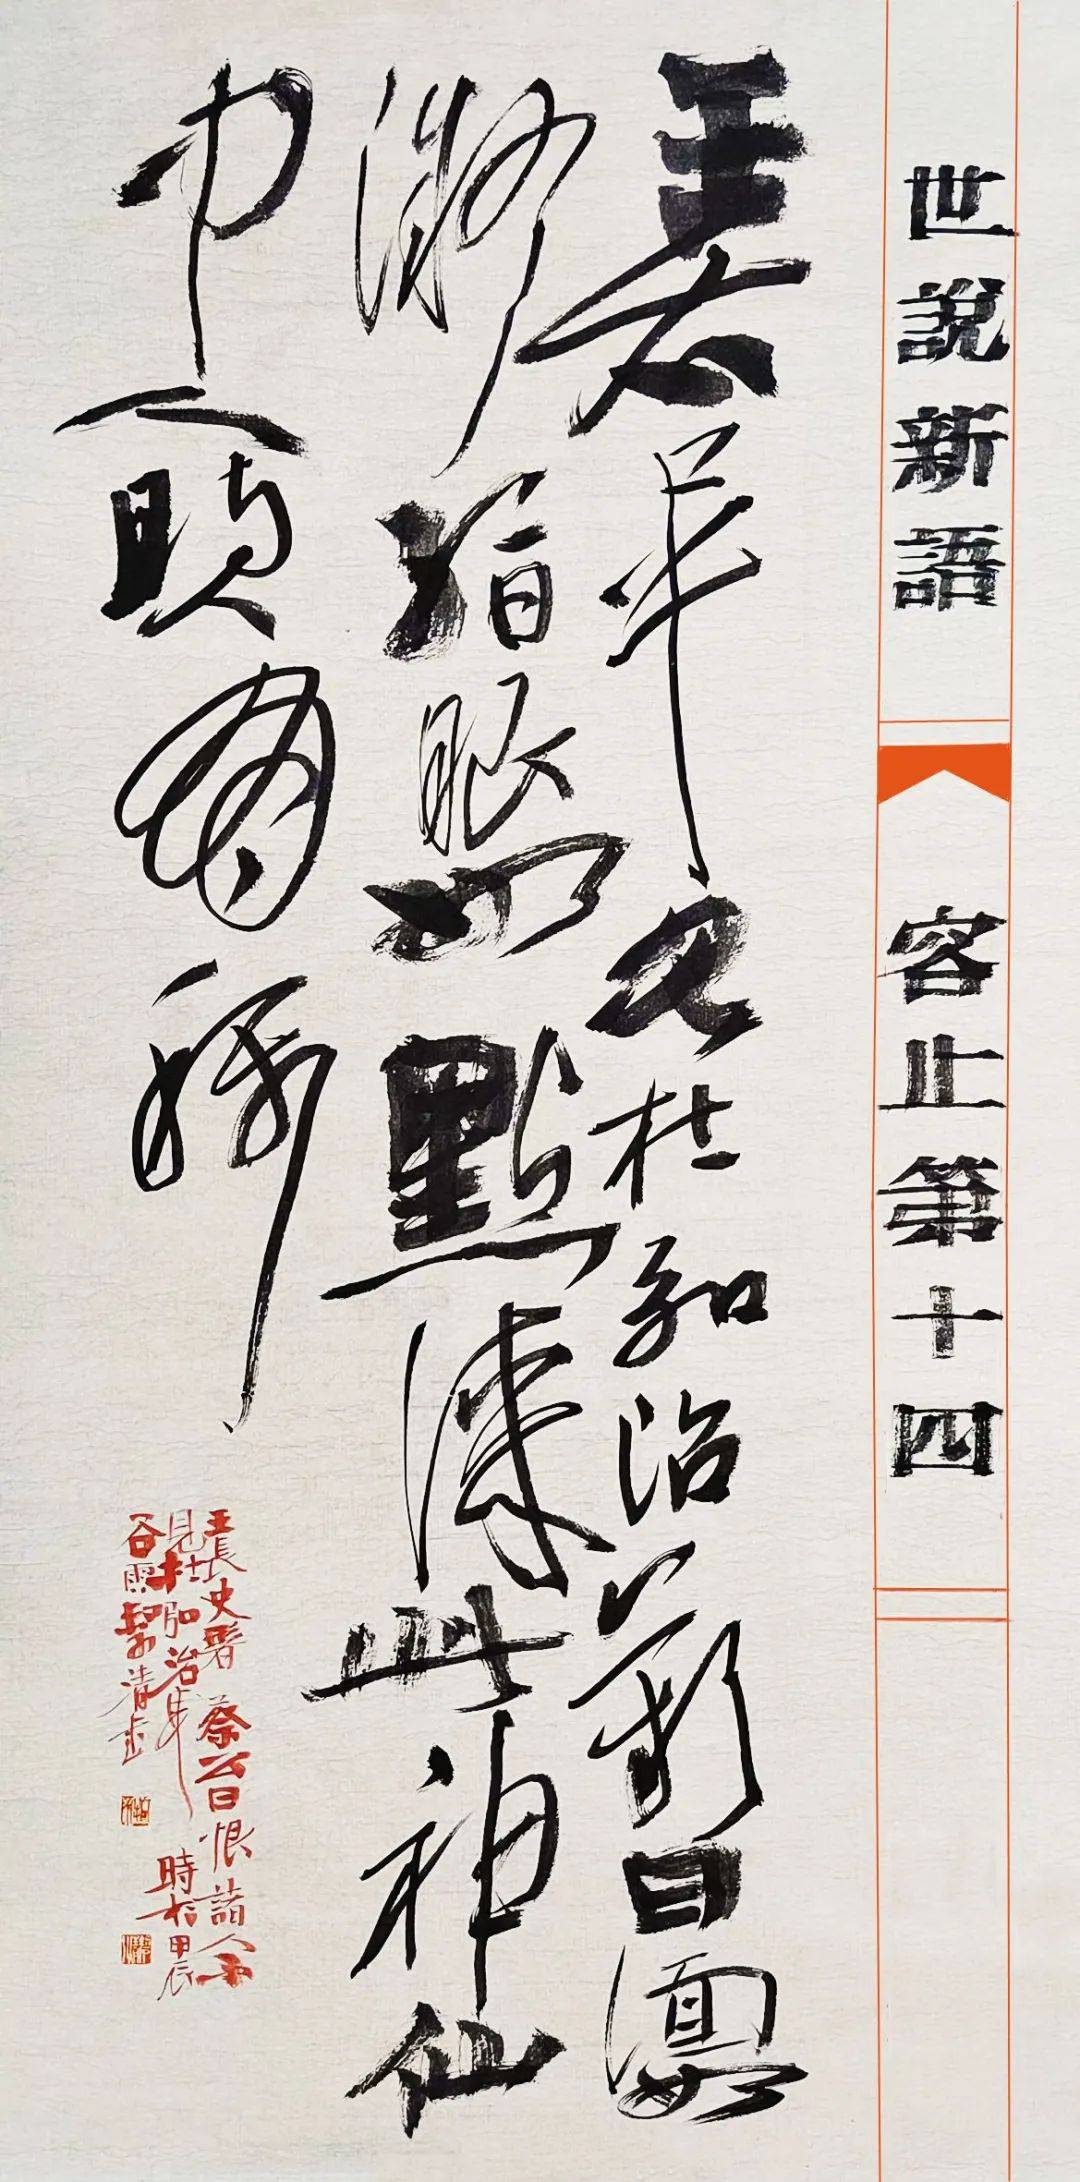 世說新語 容止第十四
王右軍見杜弘治歎曰面如
凝脂眼如點漆此神仙
中人時人有稱
王長史者蔡公曰恨諸人不
見杜弘治耳 時於甲辰
谷雨 清